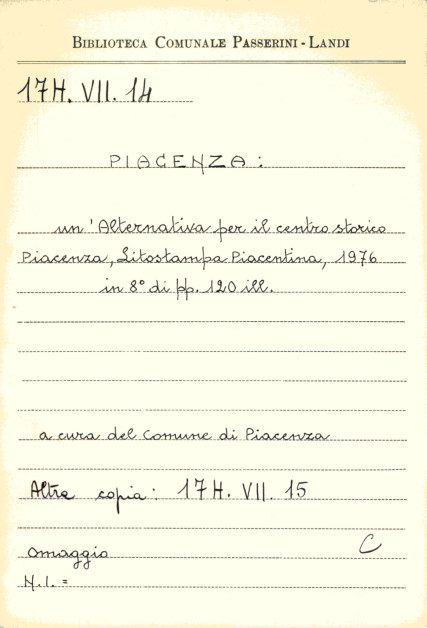 BIBLIOTECA COMUNALE PASSERINI - LANDI
17H. VII. 14
PIACENZA:
un'Alternativa per il centro storico
Piacenza, Litostampa Piacentina, 1976
in 8° di pp. 120 ill.
a cura del Comune di Piacenza
Altra copia: 17H. VII. 15
omaggio C
N.I. =